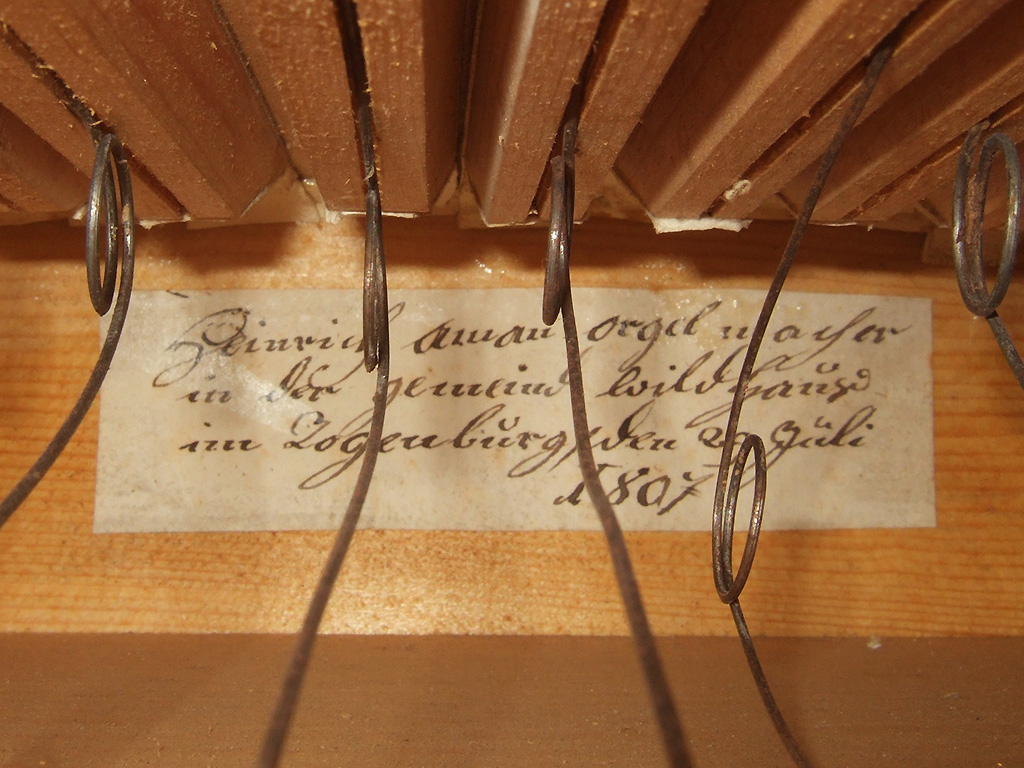 Heinrich aman orgel macher
in der gemeind Wildhauß
im Togenburg, den 29 Jüli
1807